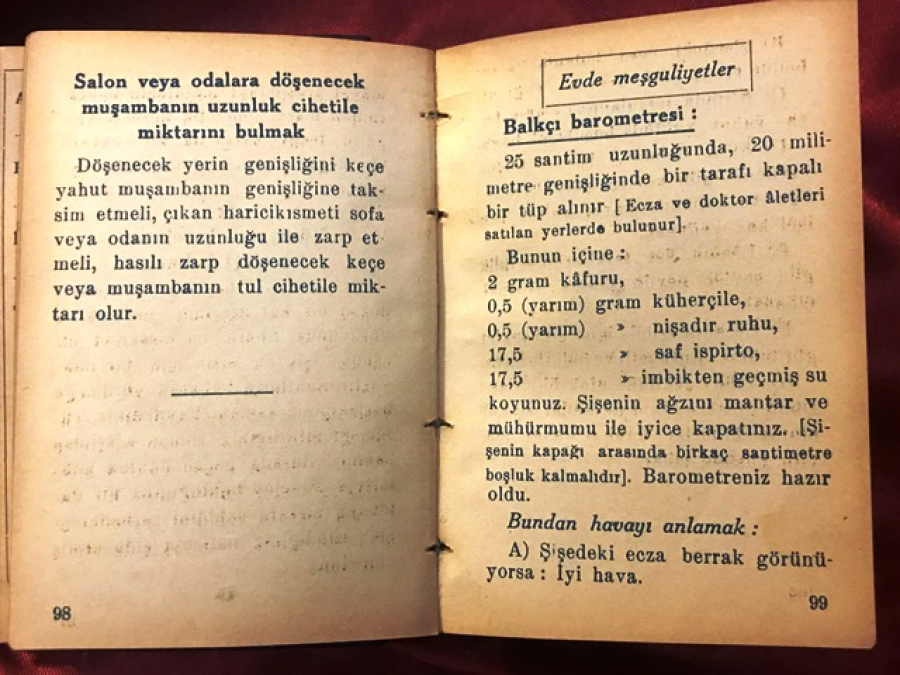 Salon veya odalara döşenecek
muşambanın uzunluk cihetile
miktarını bulmak
Döşenecek yerin genişliğini keçe
yahut muşambanın genişliğine tak-
sim etmeli, çıkan haricikısmeti sofa
veya odanın uzunluğu ile zarp et
meli, hasılı zarp döşenecek keçe
veya muşambanın tul cihetile mik-
tarı olur.
98
Evde meşguliyetler
Balkçı barometresi :
25 santim uzunluğunda, 20 mili-
metre genişliğinde bir tarafı kapalı
bir tüp alınır [Ecza ve doktor âletleri
satılan yerlerde bulunur].
Bunun içine :
2 gram kâfuru,
0,5 (yarım) gram küherçile,
0,5 (yarım) » nişadır ruhu,
17,5 » saf ispirto,
17,5 » imbikten geçmiş su
koyunuz. Şişenin ağzını mantar ve
mühürmumu ile iyice kapatınız. [Şi-
şenin kapağı arasında birkaç santimetre
boşluk kalmalıdır]. Barometreniz hazır
oldu.
Bundan havayı anlamak :
A) Şişedeki ecza berrak görünü-
yorsa : İyi hava.
99